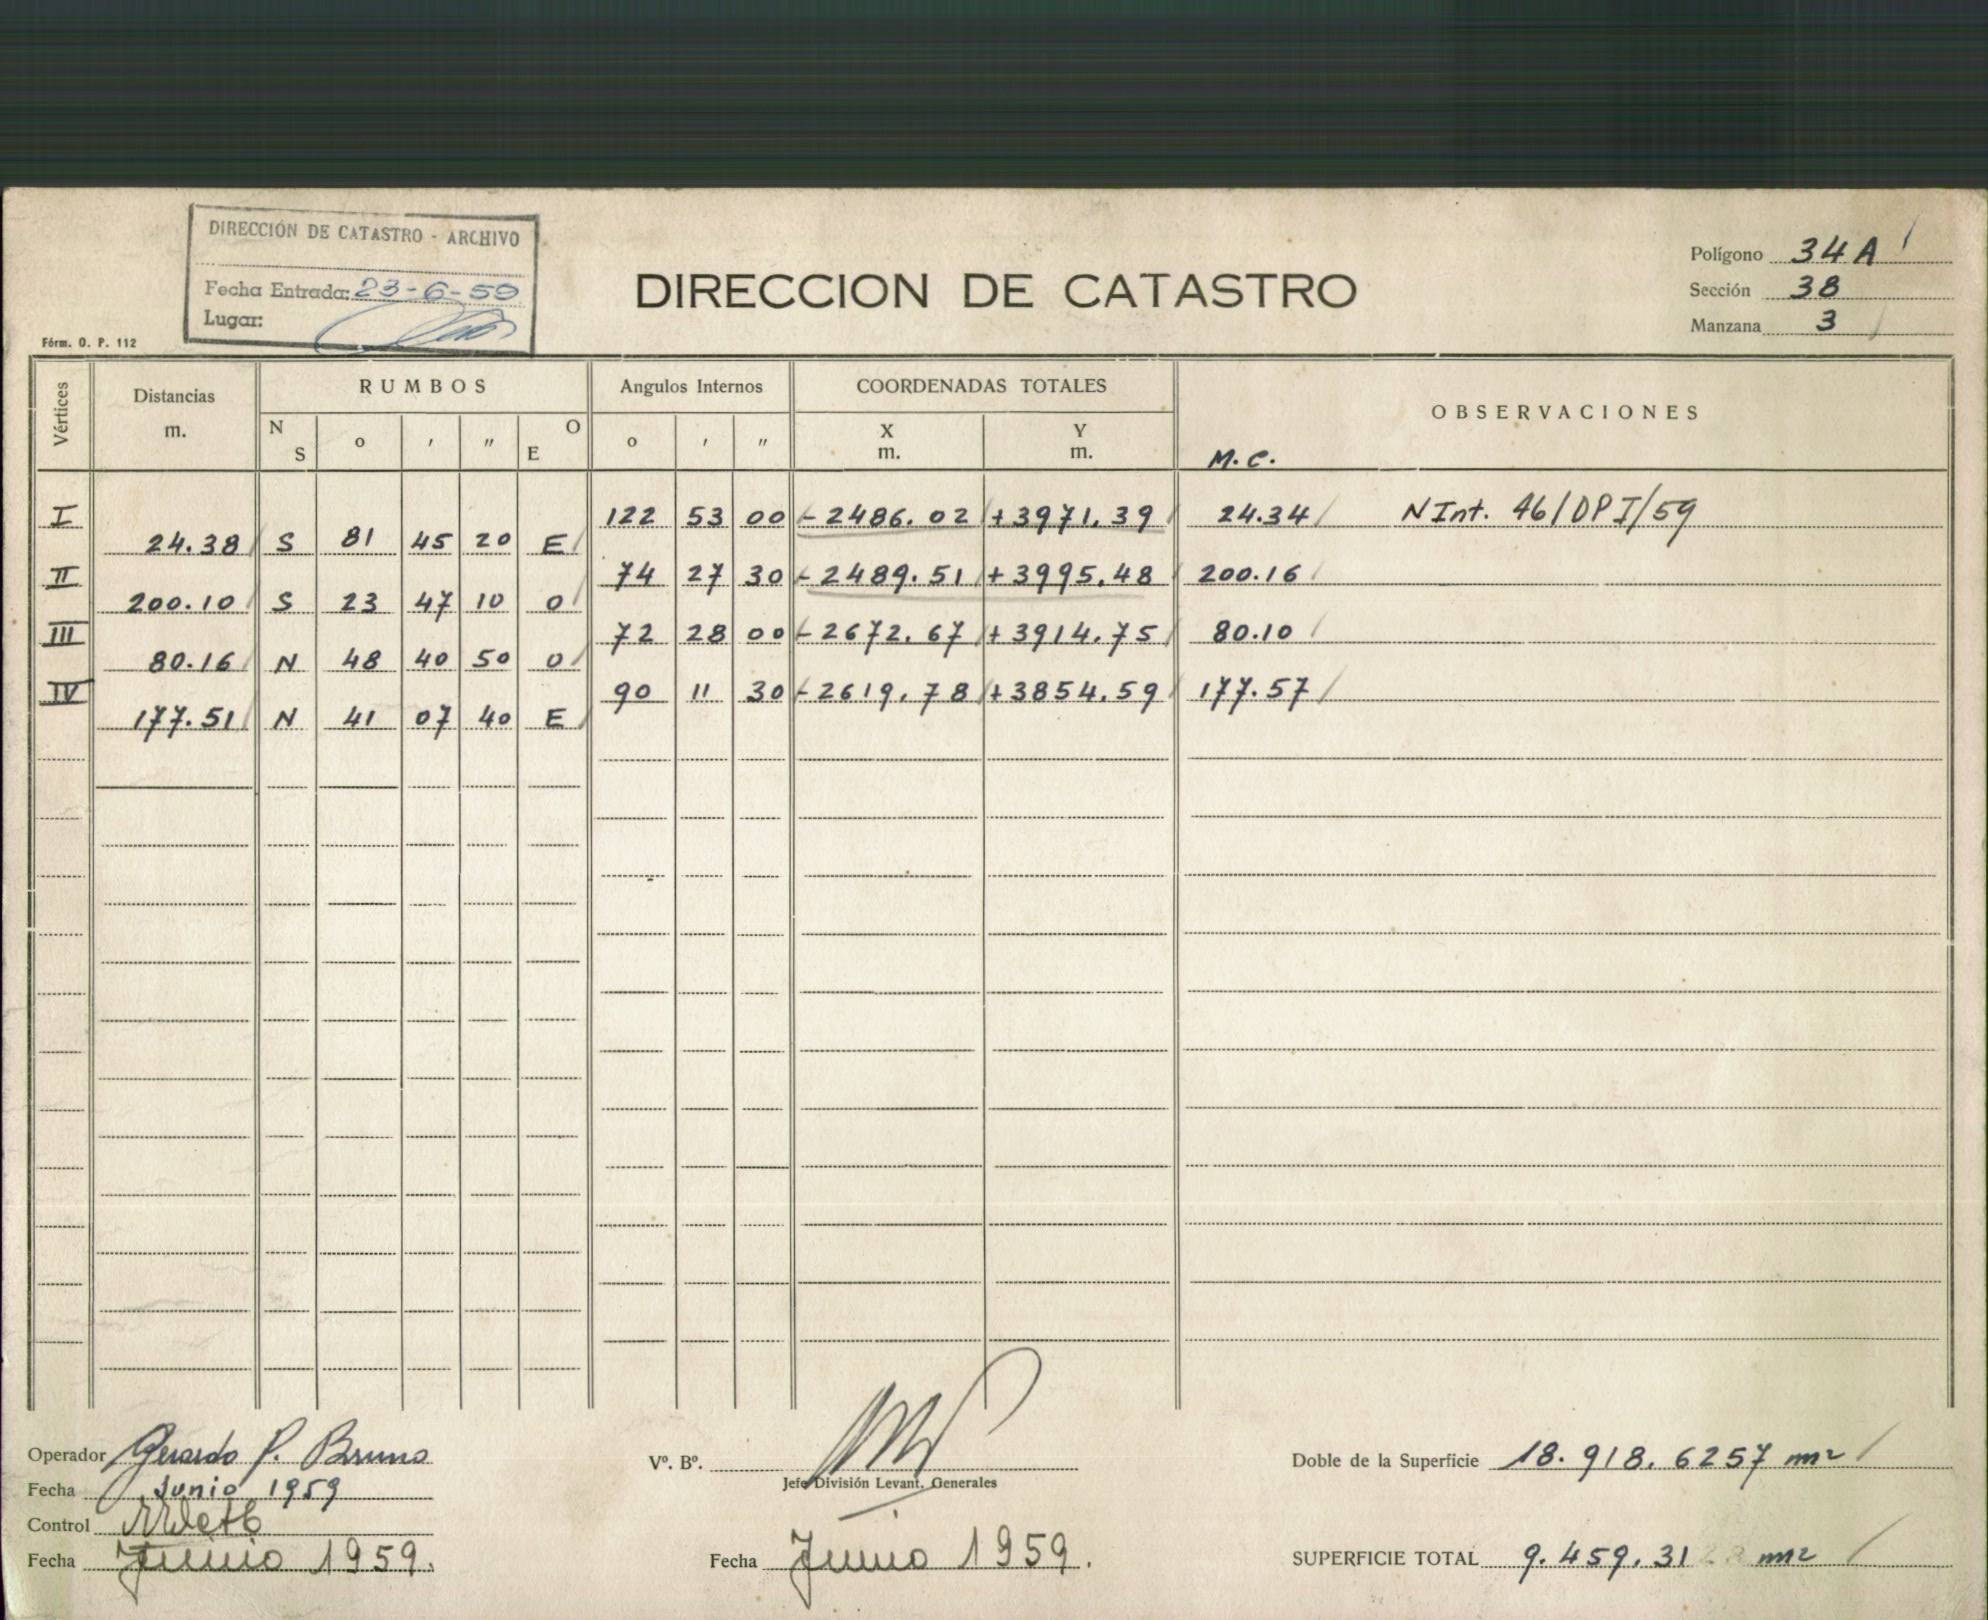 DIRECCIÓN DE CATASTRO - ARCHIVO
Fecha Entrada: 23-6-59
Lugar:
DIRECCION DE CATASTRO
Polígono 34 A
Sección 38
Manzana 3
Fórm. O. P. 112
Vértices Distancias m. RUMBOS Angulos Internos COORDENADAS TOTALES OBSERVACIONES
N S o ′ ″ O E o ′ ″ X m. Y m. M.C.
I 122 53 00 - 2486.02 + 3971.39 24.34 N Int. 46/DPI/59
24.38 S 81 45 20 E
II 74 27 30 - 2489.51 + 3995.48 200.16
200.10 S 23 47 10 O
III 72 28 00 - 2672.67 + 3914.75 80.10
80.16 N 48 40 50 O
IV 90 11 30 - 2619.78 + 3854.59 177.57
177.51 N 41 07 40 E
Operador Gerardo P. Bruno
Fecha Junio 1959
Control
Fecha Junio 1959.
Vº. Bº.
Jefe División Levant. Generales
Fecha Junio 1959.
Doble de la Superficie 18.918.6257 m2
SUPERFICIE TOTAL 9.459.31 m2